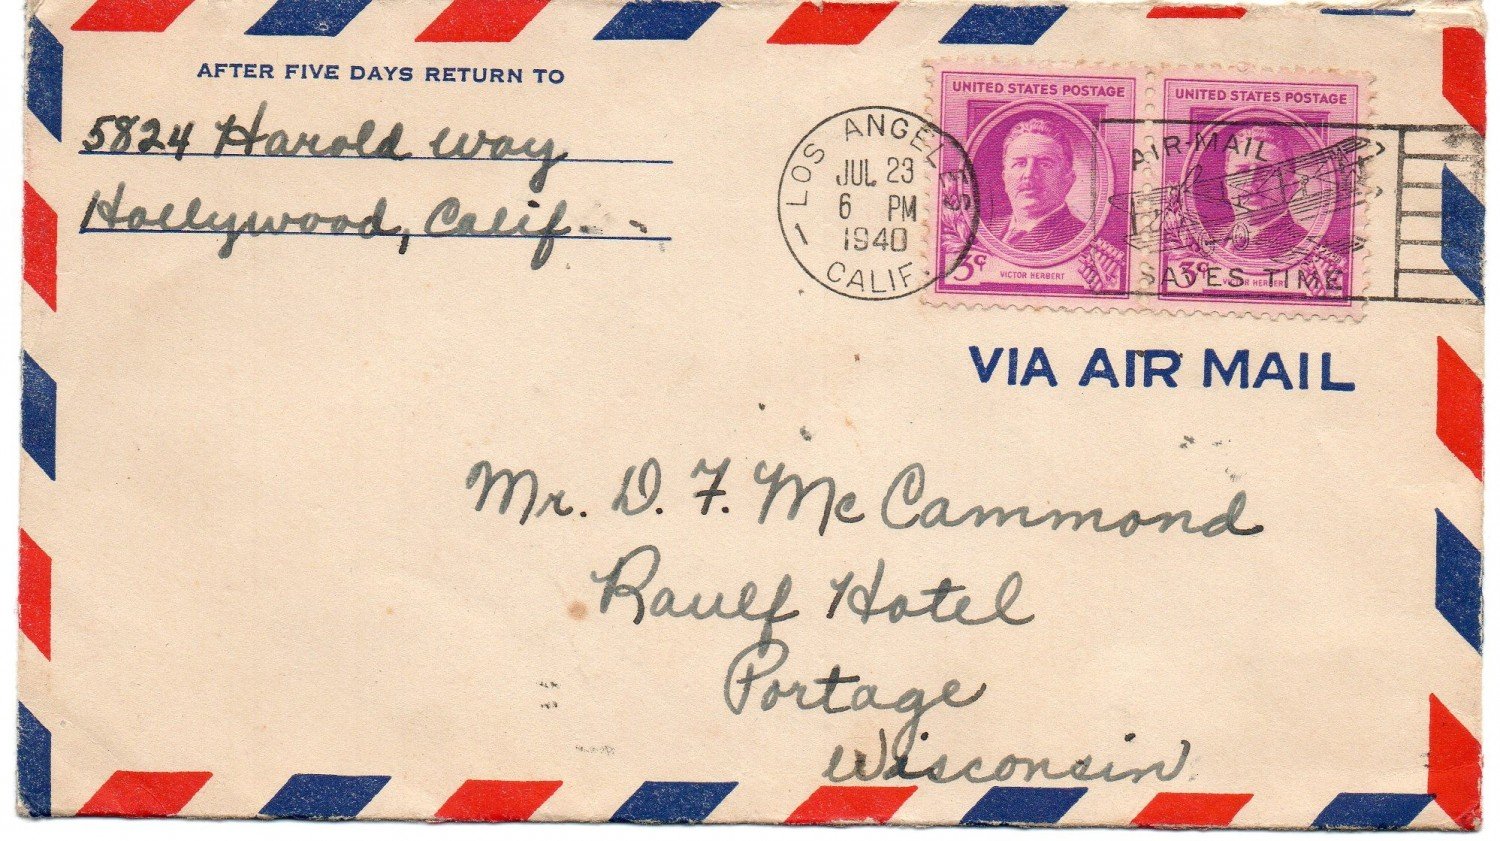 AFTER FIVE DAYS RETURN TO
5824 Harold Way
Hollywood, Calif.
LOS ANGELES
JUL 23
6 PM
1940
CALIF.
UNITED STATES POSTAGE
3¢
VICTOR HERBERT
UNITED STATES POSTAGE
3¢
VICTOR HERBERT
AIR-MAIL
SAVES TIME
VIA AIR MAIL
Mr. D. F. McCammond
Raulf Hotel
Portage
Wisconsin